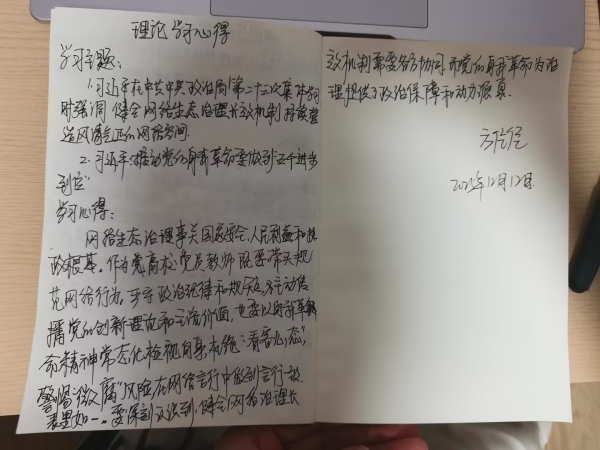 理论学习心得
学习主题：
1.习近平在中共中央政治局第二十三次集体学习
时强调 健全网络生态治理长效机制 持续营
造风清气正的网络空间
2.习近平：推动党的自我革命要做到五个进一步
到位"
学习心得：
网络生态治理事关国家安全、人民利益和执
政根基。作为高校党员教师 既要带头规
范网络行为，严守政治纪律和规矩，主动传
播党的创新理论和主流价值，也要以自我革
命精神常态化检视自身，杜绝"看客心态"，
警惕"微腐"风险，在网络言行中做到言行一致、
表里如一。要深刻认识到，健全网络治理长
效机制需要各方协同，而党的自我革命为治
理提供了政治保障和动力源泉。
2025年12月12日